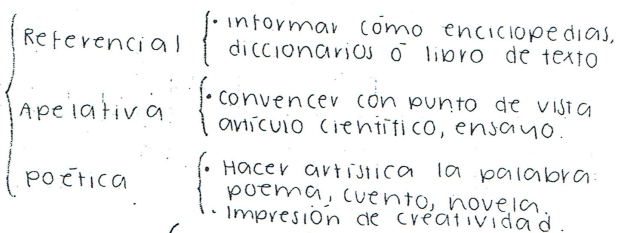 Referencial
• informar cómo enciclopedias,
diccionarios o libro de texto
Apelativa
• convencer con punto de vista
artículo científico, ensayo.
poética
• Hacer artística la palabra:
poema, cuento, novela.
• Impresión de creatividad.